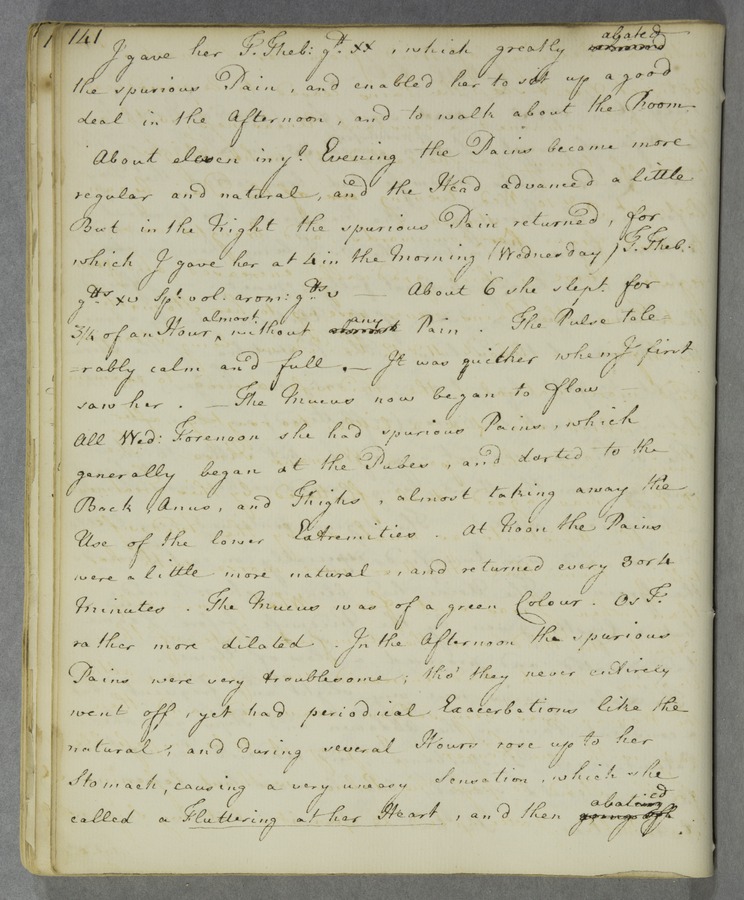 141
I gave her T. Theb: gtt xx, which greatly abated
the spurious Pain, and enabled her to sit up a good
deal in the Afternoon, and to walk about the Room.
About eleven in ye. Evening the Pains became more
regular and natural, and the Head advanced a little
But in the Night the spurious Pain returned, for
which I gave her at 4 in the Morning (Wednesday) T. Theb:
gtts xv Spt. vol: arom: gtts v — About 6 she slept for
3/4 of an Hour almost without any Pain. The Pulse tole=
=rably calm and full. — It was quicker when I first
saw her. — The Mucus now began to flow
All Wed: Forenoon she had spurious Pains, which
generally began at the Pubes, and darted to the
Back, Anus, and Thighs, almost taking away the
Use of the lower Extremities. At Noon the Pains
were a little more natural, and returned every 3 or 4
Minutes. The Mucus was of a green Colour. Os T.
rather more dilated. In the Afternoon the spurious
Pains were very troublesome; tho' they never entirely
went off, yet had periodical Exacerbations like the
natural; and during several Hours rose up to her
Stomach, causing a very uneasy Sensation, which she
called a Fluttering at her Heart, and then abated.